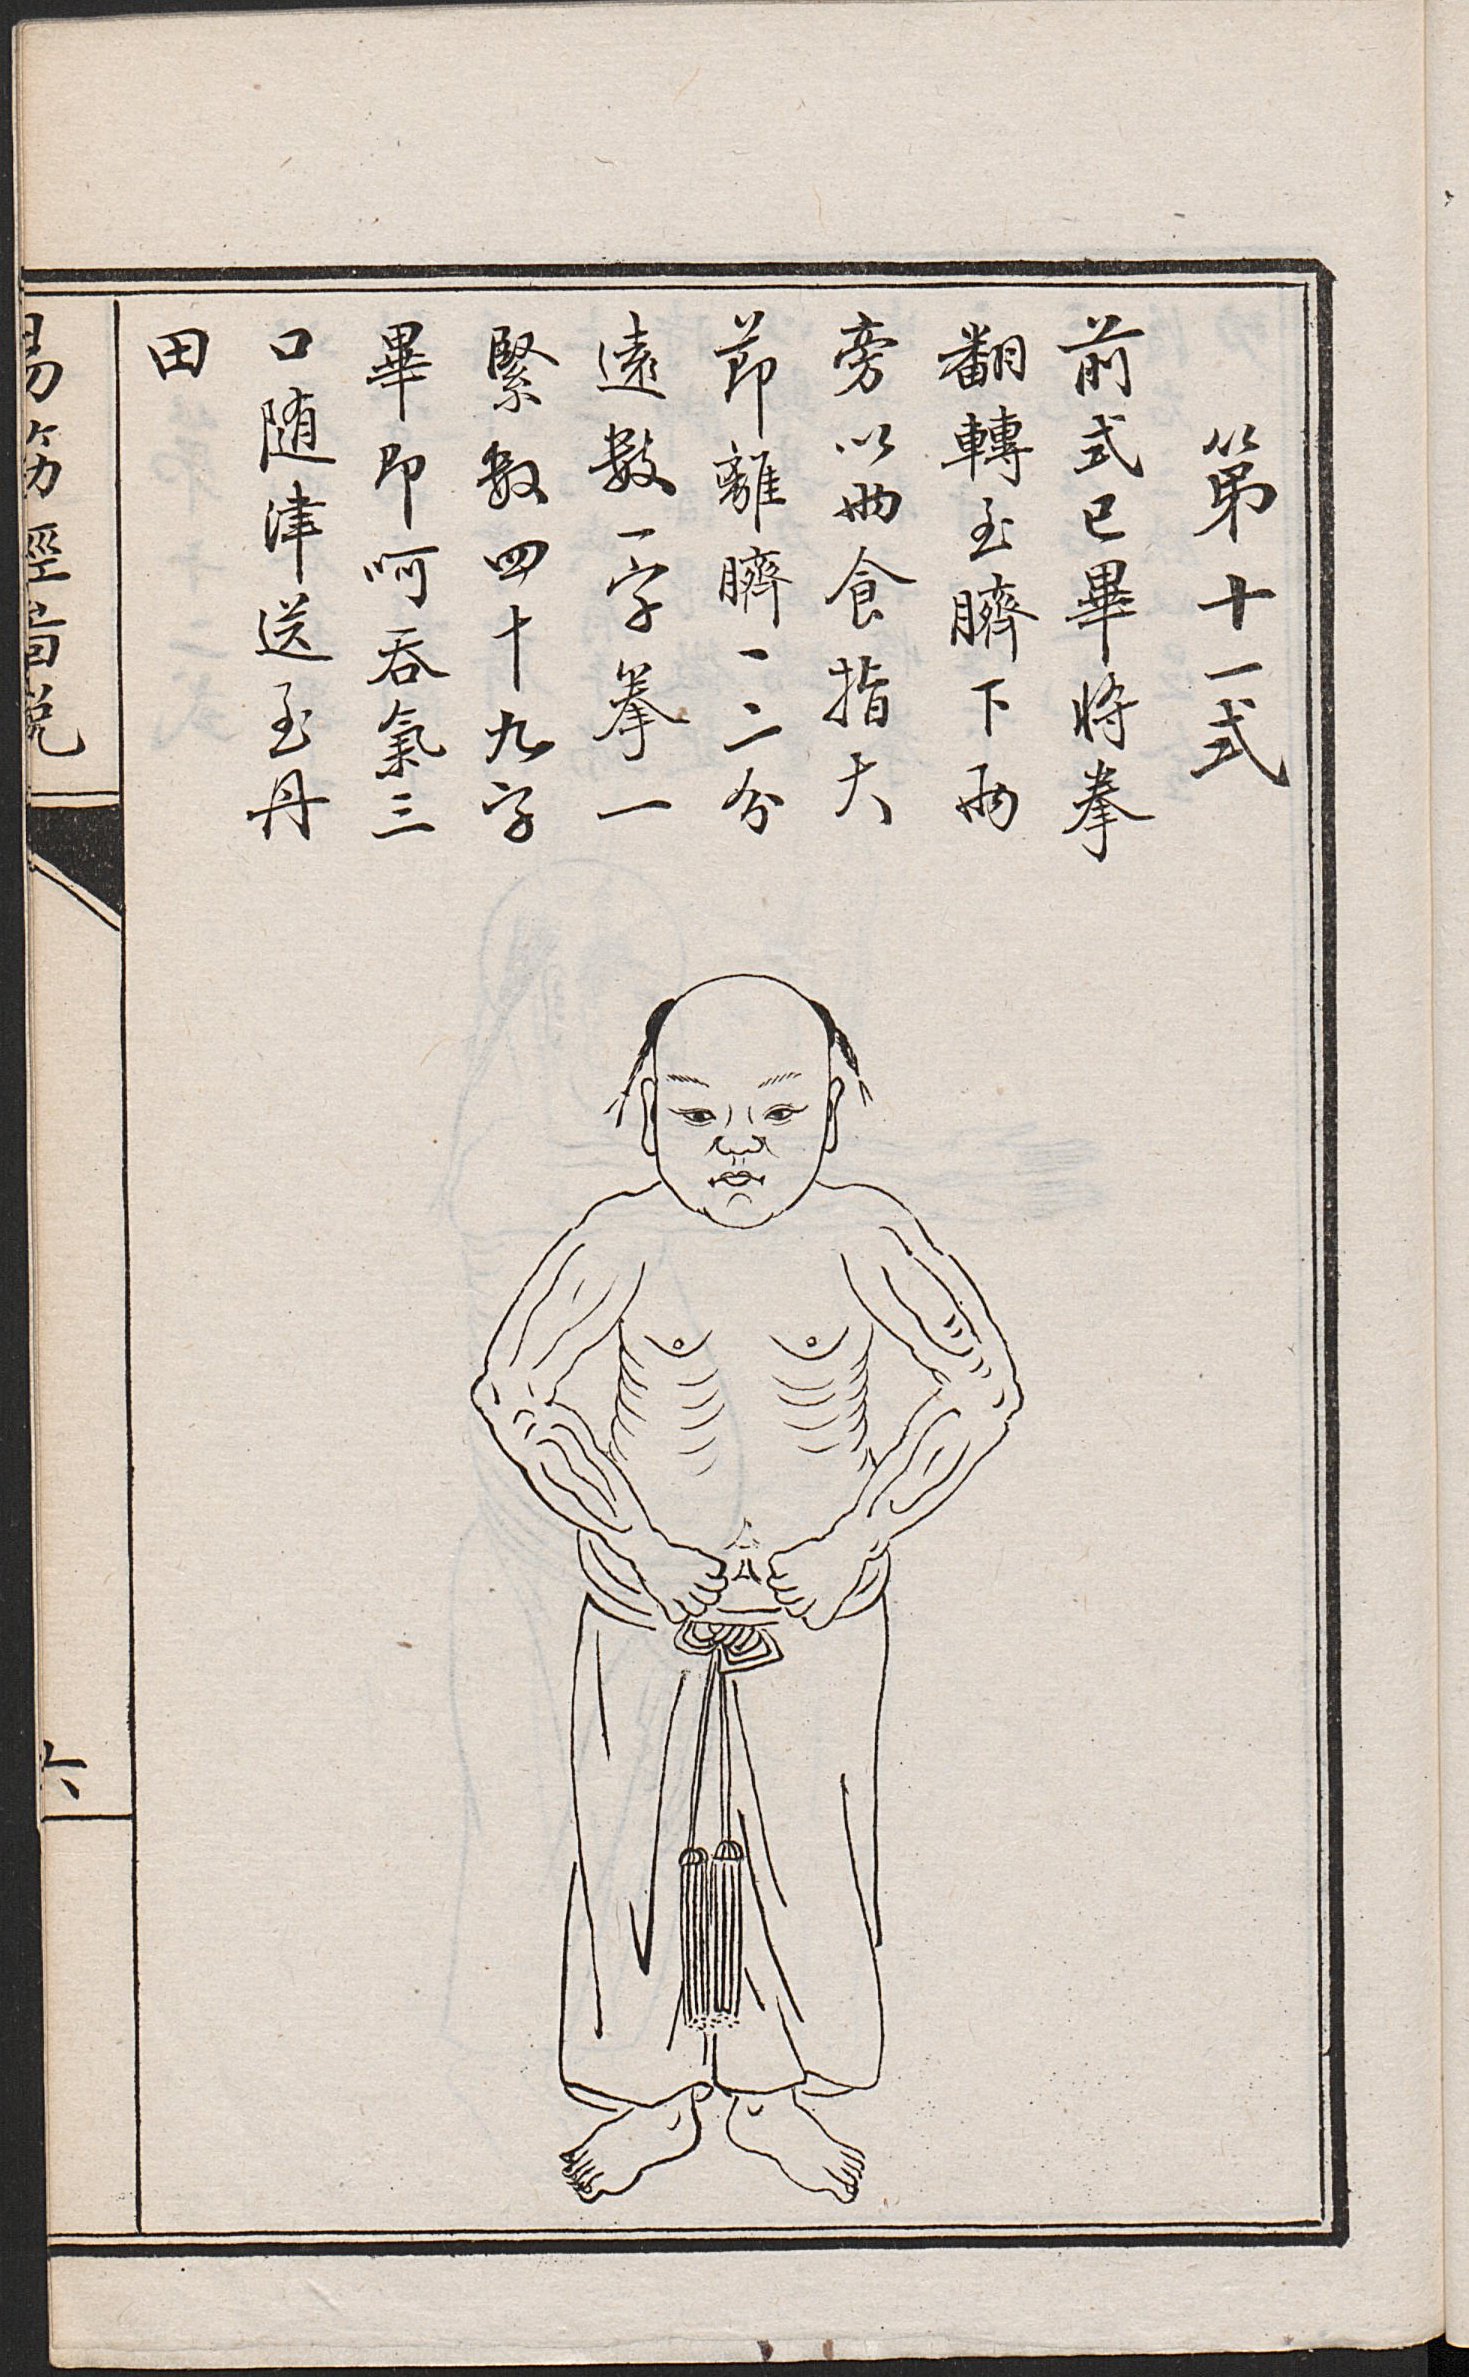 第十一式
前式已畢將拳
翻轉至臍下兩
旁以兩食指大
節離臍一二分
遠數一字拳一
緊數四十九字
畢即呵吞氣三
口随津送至丹
田
易筋經首說
六